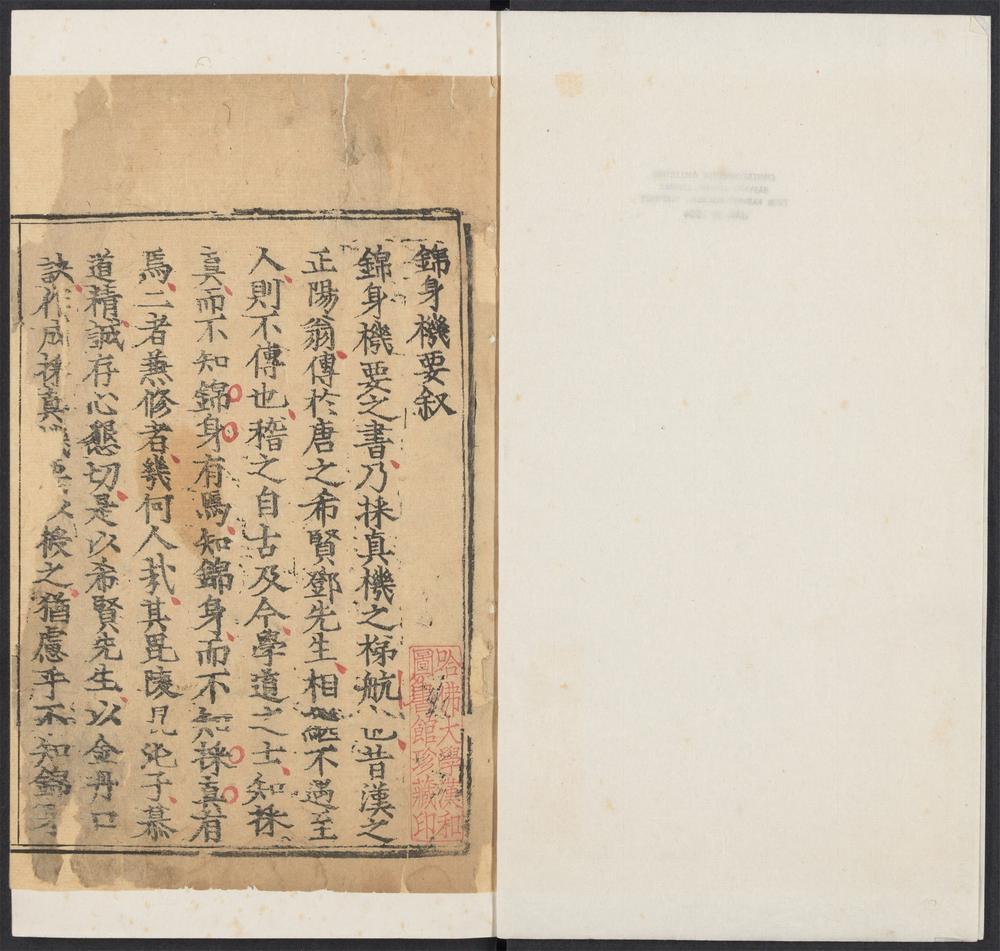 錦身機要叙
錦身機要之書乃採真機之梯航也昔漢之
正陽翁傳於唐之希賢鄧先生相繼不遇至
人則不傳也稽之自古及今學道之士知採
真而不知錦身有焉知錦身而不知採真有
焉二者蒹修者幾何人㢤其毘陵混沌子慕
道精誠存心懇切是以希賢先生以金丹口
訣作成採真機要以授之猶慮乎不知錦身
哈佛大學漢和
圖書館珍藏印